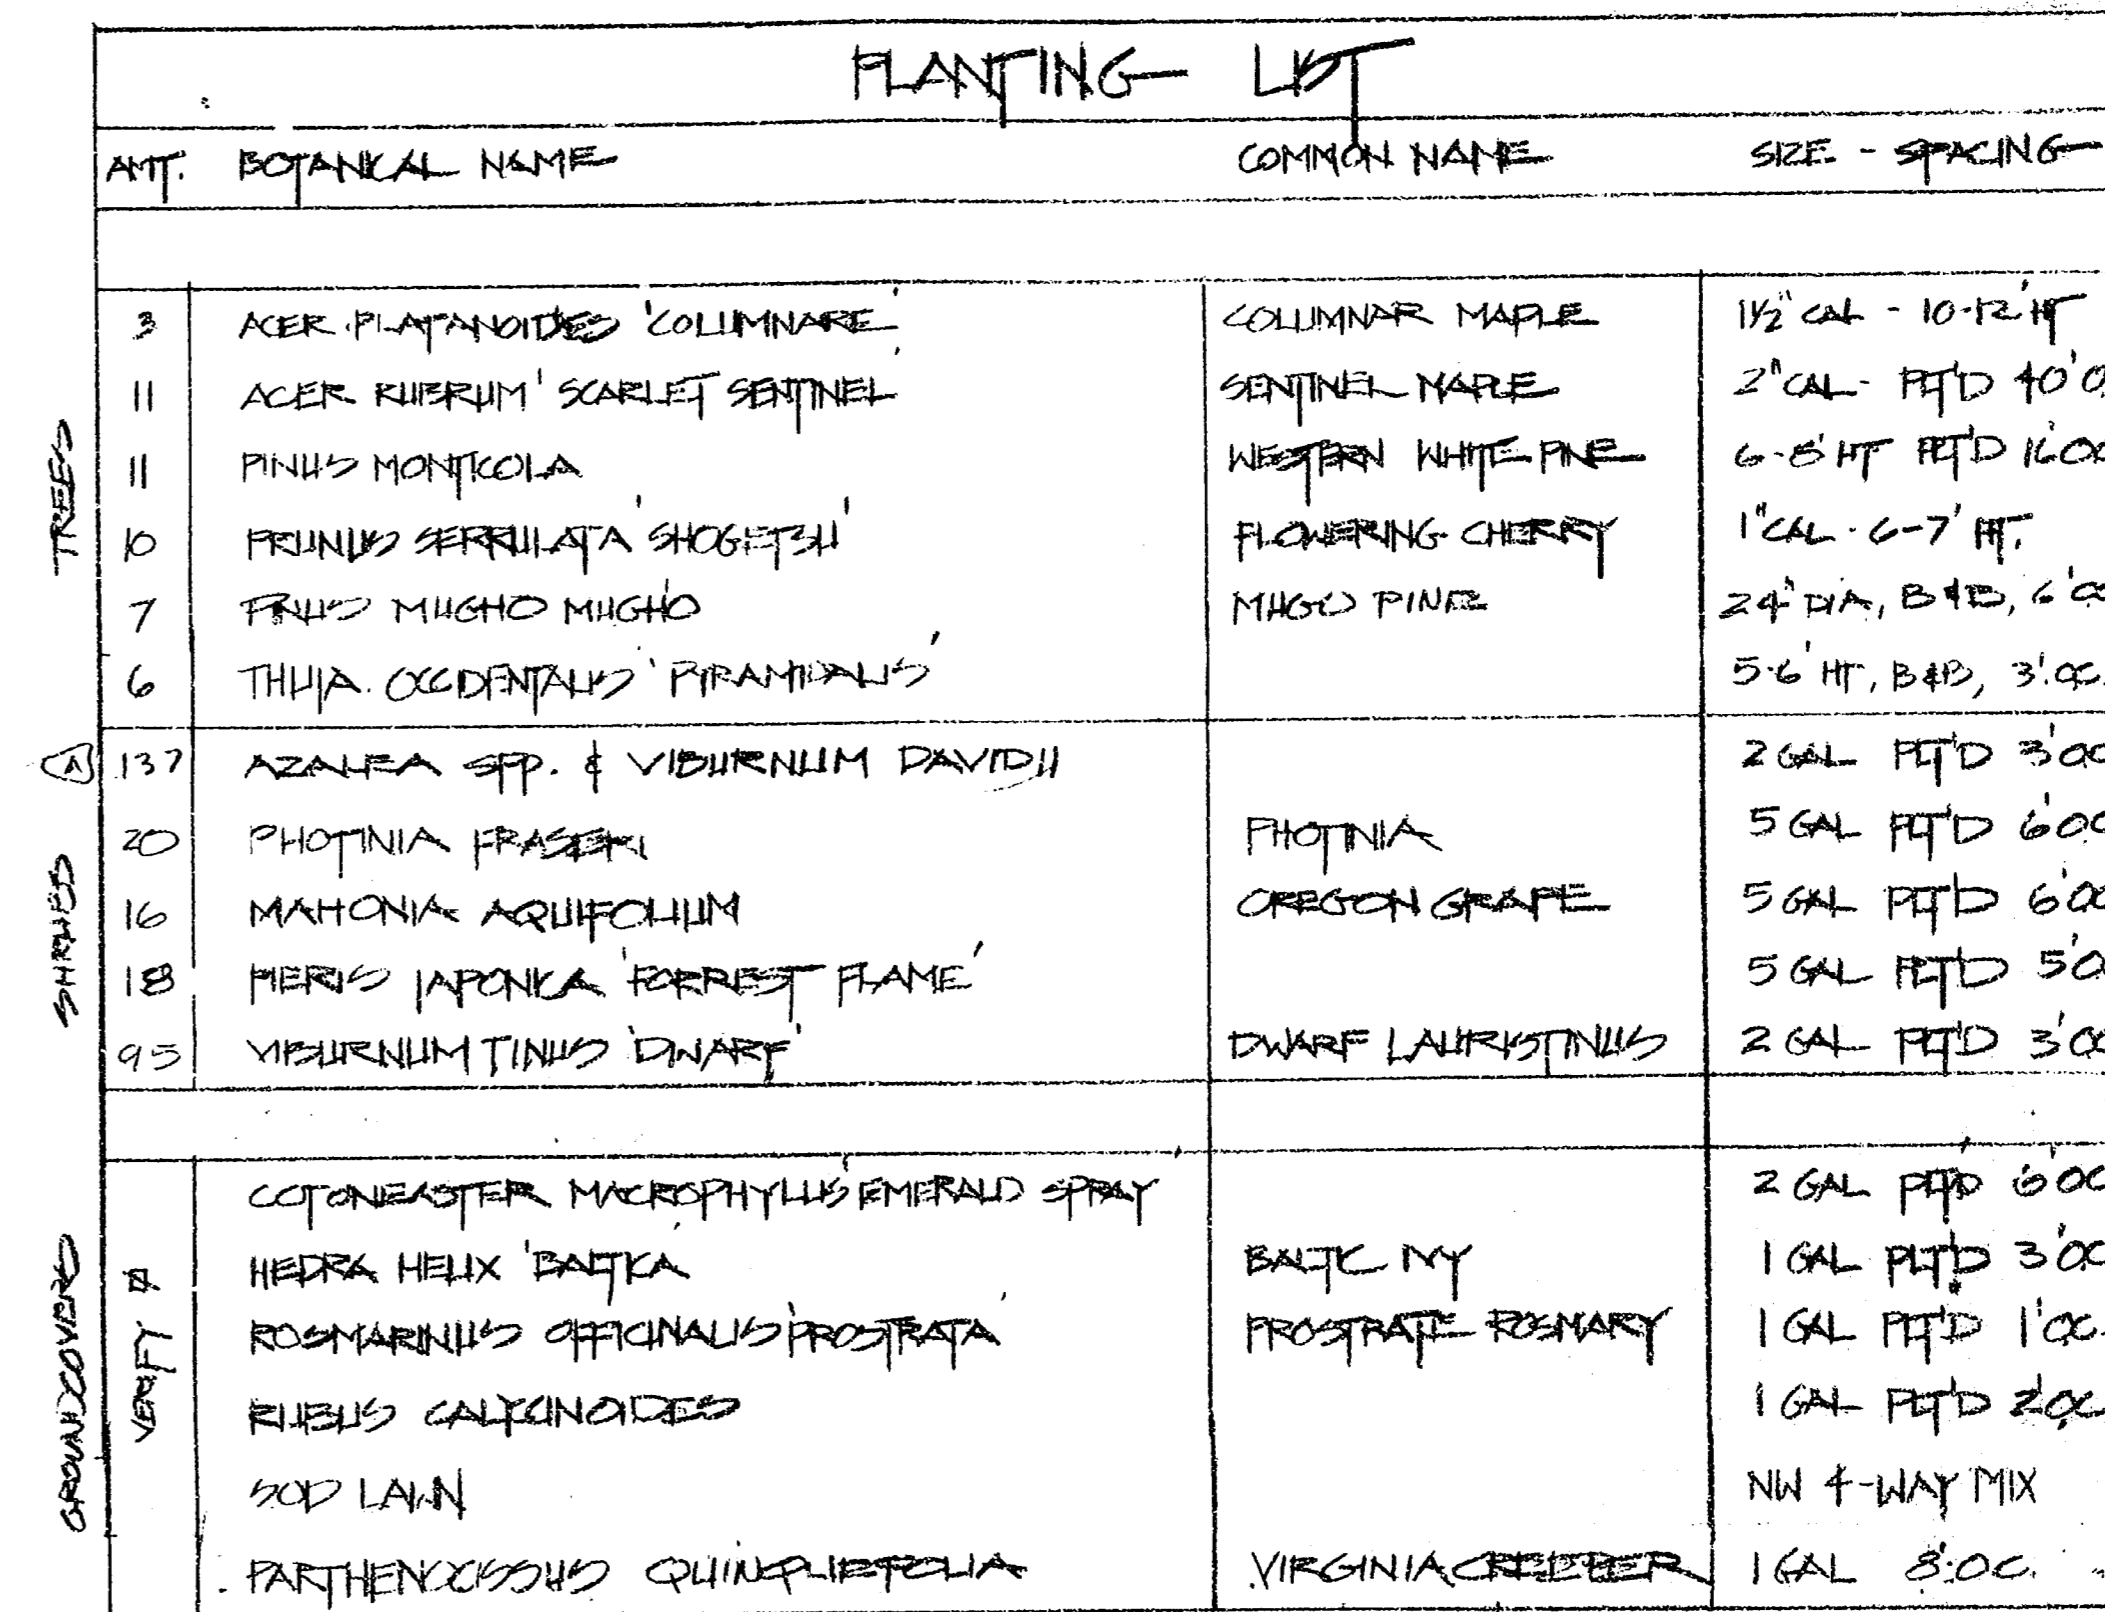 PLANTING LIST
AMT. BOTANICAL NAME COMMON NAME SIZE - SPACING
TREES
3 ACER PLATANOIDES 'COLUMNARE' COLUMNAR MAPLE 1½" CAL - 10-12' HT
11 ACER RUBRUM 'SCARLET SENTINEL' SENTINEL MAPLE 2" CAL - PLT'D 40' O
11 PINUS MONTICOLA WESTERN WHITE PINE 6-8' HT PLT'D 16' OC
10 PRUNUS SERRULATA 'SHOGETSU' FLOWERING CHERRY 1" CAL - 6-7' HT.
7 PINUS MUGHO MUGHO MUGO PINE 24" DIA, B&B, 6' OC
6 THUJA OCCIDENTALIS 'PYRAMIDALIS' 5-6' HT, B&B, 3' OC.
SHRUBS
137 AZALEA SPP. & VIBURNUM DAVIDII 2 GAL PLT'D 3' OC
20 PHOTINIA FRASERI PHOTINIA 5 GAL PLT'D 6' OC
16 MAHONIA AQUIFOLIUM OREGON GRAPE 5 GAL PLT'D 6' OC
18 PIERIS JAPONICA 'FORREST FLAME' 5 GAL PLT'D 5' O
95 VIBURNUM TINUS 'DWARF' DWARF LAURISTINUS 2 GAL PLT'D 3' OC
GROUNDCOVERS
VERIFY #
COTONEASTER MACROPHYLLUS 'EMERALD SPRAY 2 GAL PLT'D 6' OC
HEDRA HELIX 'BALTICA' BALTIC IVY 1 GAL PLT'D 3' OC
ROSMARINUS OFFICINALIS 'PROSTRATA' PROSTRATE ROSMARY 1 GAL PLT'D 1' OC.
RUBUS CALYCINOIDES 1 GAL PLT'D 2' OC
SOD LAWN NW 4-WAY MIX
PARTHENOCISSUS QUINQUIEFOLIA VIRGINIA CREEPER 1 GAL 8' OC.